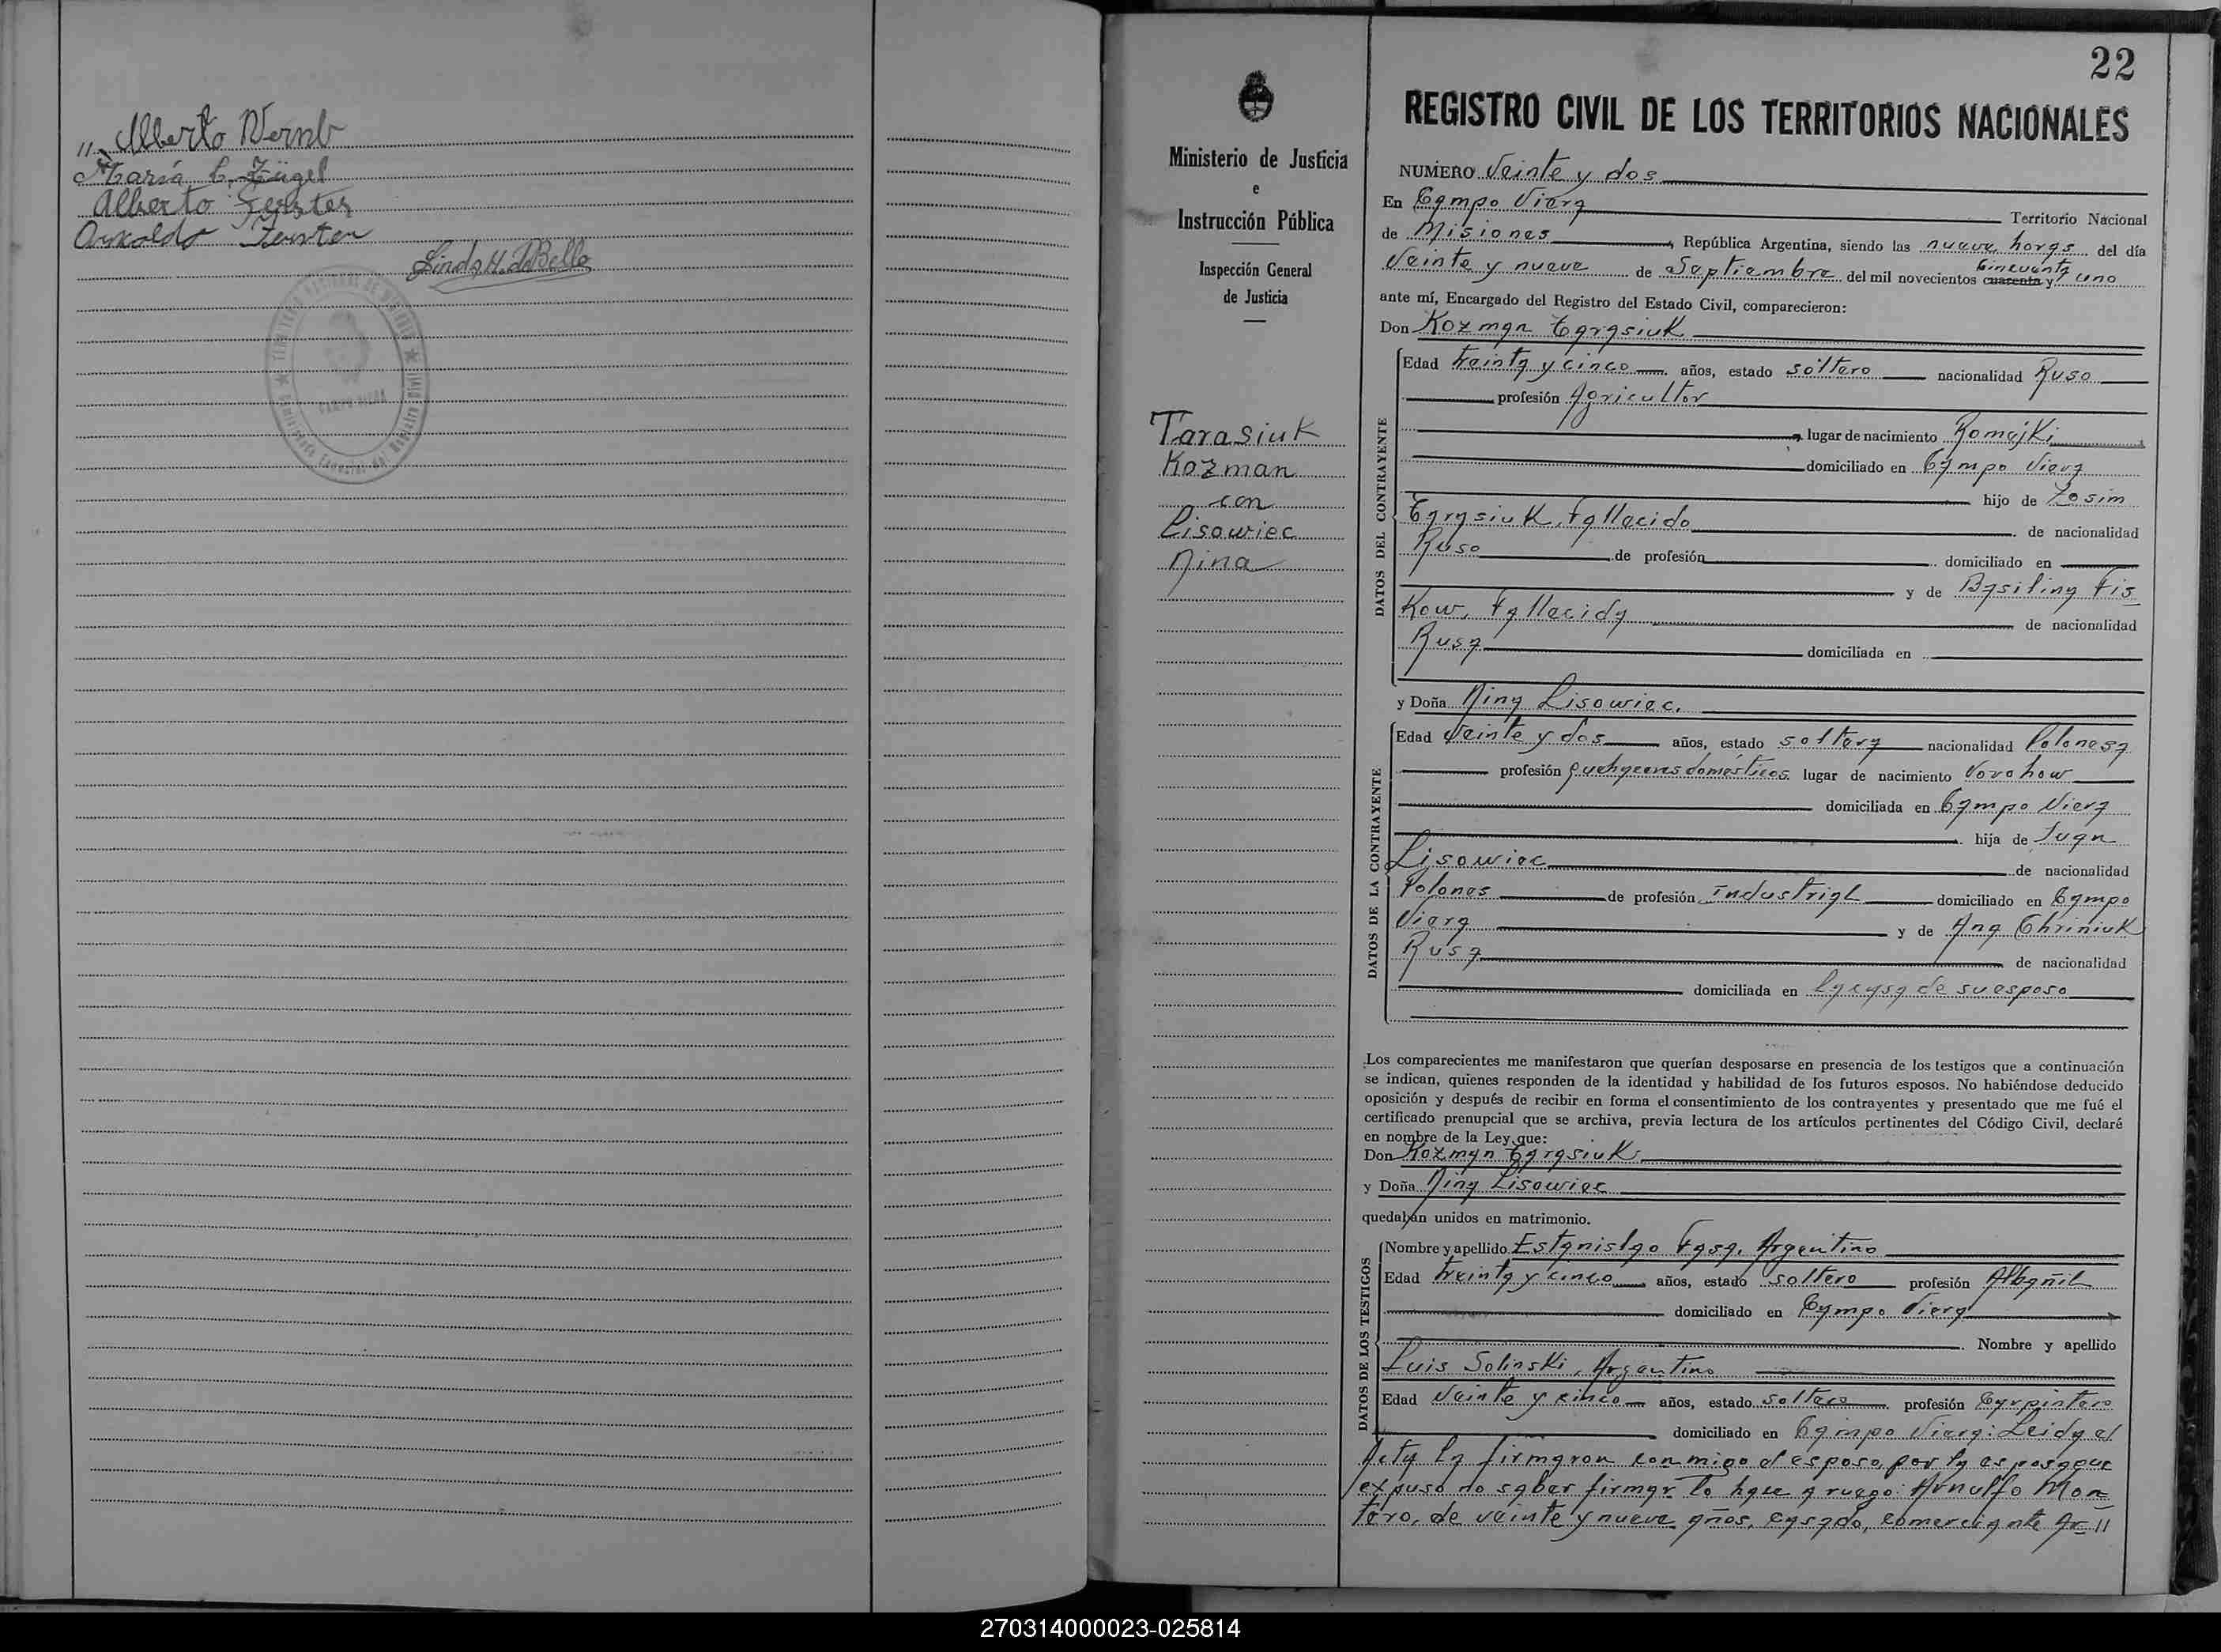 11 Alberto Wernb
María C. Zügel
Alberto Ferster
Arnoldo Ferster
Linda H. de Bello
CAMPO VIERA
22
REGISTRO CIVIL DE LOS TERRITORIOS NACIONALES
Ministerio de Justicia
e
Instrucción Pública
Inspección General
de Justicia
Tarasiuk
Kozman
con
Lisowiec
Nina
NUMERO Veinte y dos
En Campo Viera Territorio Nacional
de Misiones, República Argentina, siendo las nueve horas del día
Veinte y nueve de Septiembre del mil novecientos cuarenta y cincuenta uno
ante mí, Encargado del Registro del Estado Civil, comparecieron:
Don Kozman Tarasiuk
DATOS DEL CONTRAYENTE
Edad treinta y cinco años, estado soltero nacionalidad Ruso
profesión Agricultor
lugar de nacimiento Romejki
domiciliado en Campo Viera
hijo de Zosim
Tarasiuk, fallecido de nacionalidad
Ruso de profesión domiciliado en
y de Basilina Fis
Kow, fallecida de nacionalidad
Rusa domiciliada en
y Doña Nina Lisowiec.
DATOS DE LA CONTRAYENTE
Edad Veinte y dos años, estado soltera nacionalidad Polonesa
profesión quehaceres domésticos lugar de nacimiento Vorohow
domiciliada en Campo Viera
hija de Juan
Lisowiec de nacionalidad
Polones de profesión industrial domiciliado en Campo
Viera y de Ana Chriniuk
Rusa de nacionalidad
domiciliada en la casa de su esposo
Los comparecientes me manifestaron que querían desposarse en presencia de los testigos que a continuación
se indican, quienes responden de la identidad y habilidad de los futuros esposos. No habiéndose deducido
oposición y después de recibir en forma el consentimiento de los contrayentes y presentado que me fué el
certificado prenupcial que se archiva, previa lectura de los artículos pertinentes del Código Civil, declaré
en nombre de la Ley que:
Don Kozman Tarasiuk
y Doña Nina Lisowiec
quedaban unidos en matrimonio.
DATOS DE LOS TESTIGOS
Nombre y apellido Estanislao Fasa, Argentino
Edad treinta y cinco años, estado soltero profesión Albañil
domiciliado en Campo Viera
Nombre y apellido
Luis Solinski, Argentino
Edad Veinte y cinco años, estado soltero profesión Carpintero
domiciliado en Campo Viera: Leida el
Acta la firmaron conmigo el esposo, por la esposa que
expuso no saber firmar lo hace a ruego: Arnulfo Mon
tero, de veinte y nueve años, casado, comerciante Ar 11
270314000023-025814